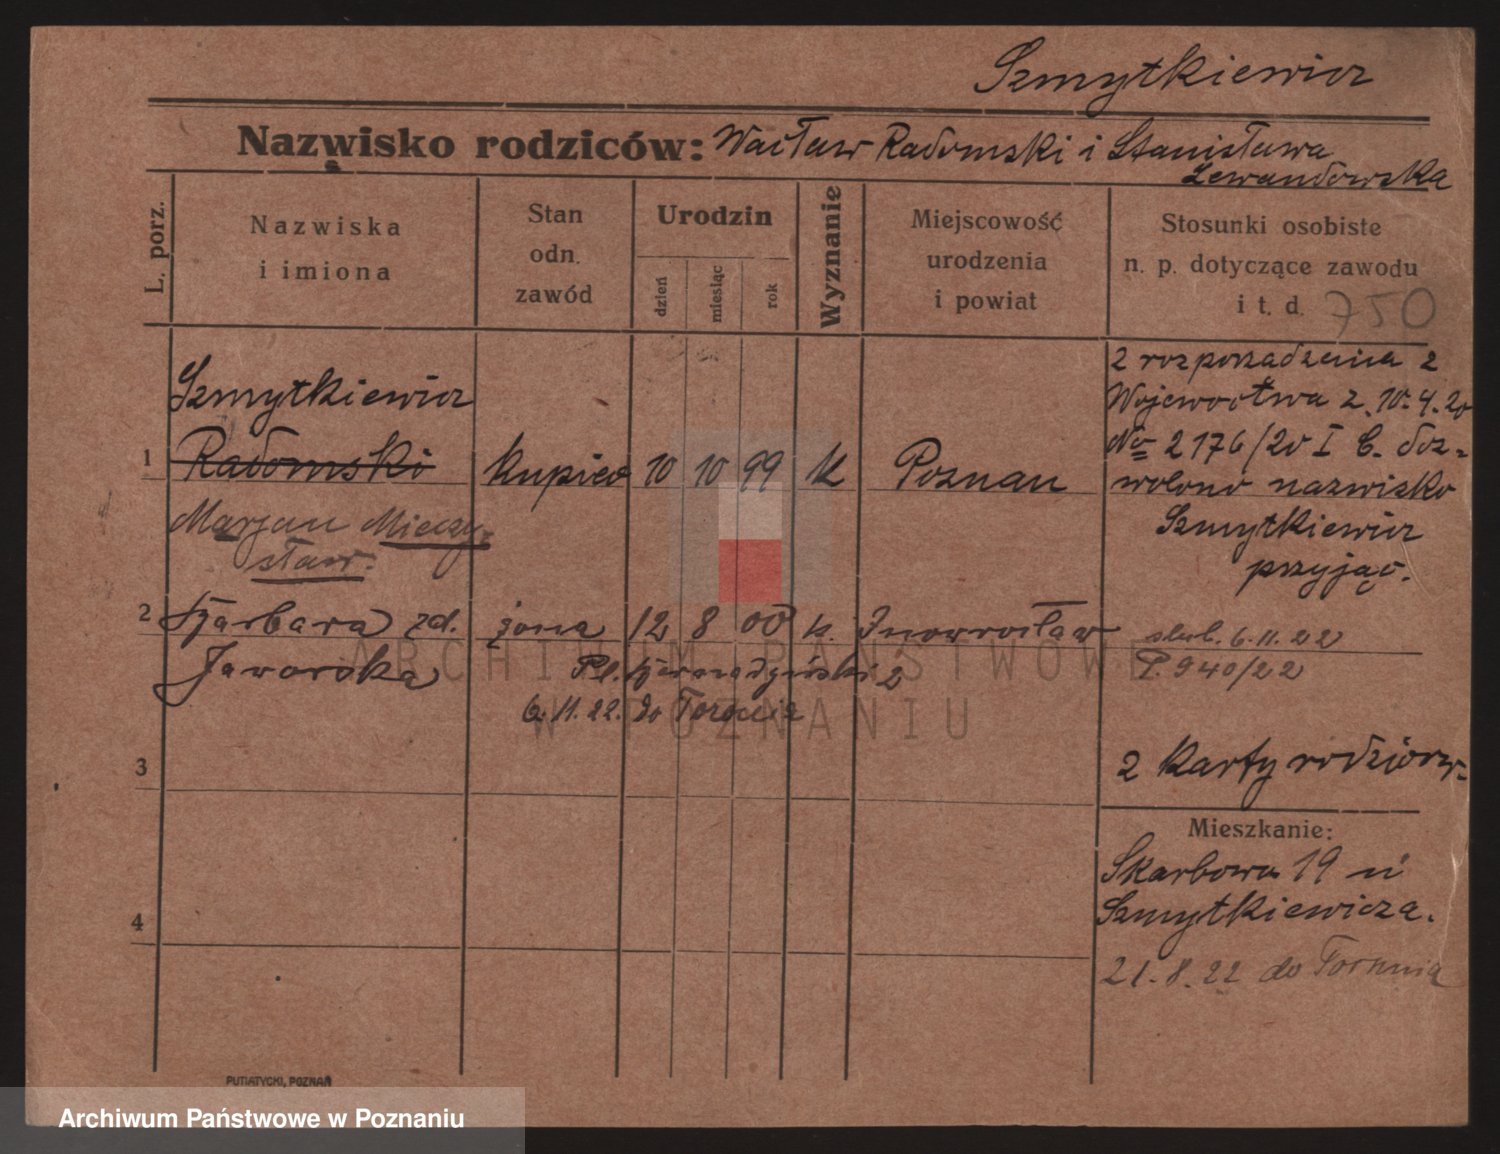 Szmytkiewicz
Nazwisko rodziców: Wacław Radomski i Stanisława
Lewandowska
L. porz.
Nazwiska
i imiona
Stan
odn.
zawód
Urodzin
dzień
miesiąc
rok
Wyznanie
Miejscowość
urodzenia
i powiat
Stosunki osobiste
n. p. dotyczące zawodu
i t. d. 750
Szmytkiewicz
1 Radomski kupiec 10 10 99 k Poznan
Marjan Mieczy-
sław.
z rozporządzenia z
Wojewodztwa z. 10. 4. 20
No 2176/20 I C. doz-
wolono nazwisko
Szmytkiewicz
przyjąć.
2 Barbara zd. żona 12 8 00 k. Inowrocław
Jaworska
Pl. Bernadyński 2
6. 11. 22. do
ślub. 6. 11. 22
P. 940/22
z karty rodziców-
3
Mieszkanie:
Skarbowa 19 u
Szmytkiewicza.
21. 8. 22 do Torunia
4
PUTIATYCKI, POZNAŃ
ARCHIWUM PAŃSTWOWE
W POZNANIU
Archiwum Państwowe w Poznaniu